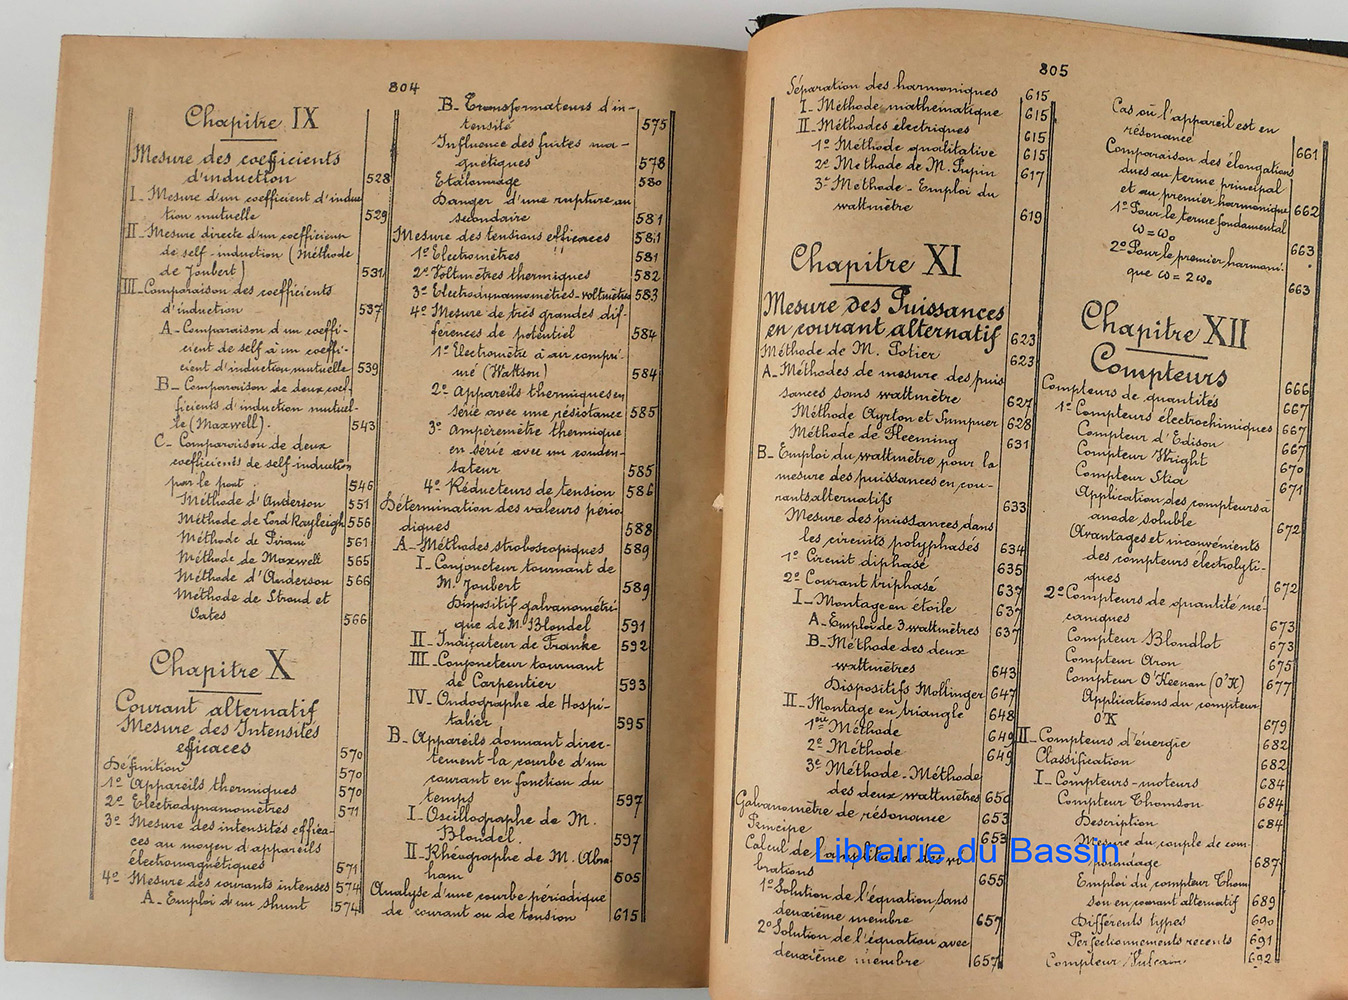 804
Chapitre IX
Mesure des coefficients
d'induction 528
I_ Mesure d'un coefficient d'induc
tion mutuelle 529
II_ Mesure directe d'un coefficient
de self-induction (Méthode
de Joubert) 531
III_ Comparaison des coefficients
d'induction 537
A_ Comparaison d'un coeffi-
cient de self à un coeffi-
cient d'induction mutuelle 539
B_ Comparaison de deux coef-
ficients d'induction mutuel-
le (Maxwell). 543
C_ Comparaison de deux
coefficients de self-induction
par le pont. 546
Méthode d'Anderson 551
Méthode de Lord Rayleigh 556
Méthode de Pirani 561
Méthode de Maxwell 565
Méthode d'Anderson 566
Méthode de Stroud et
Oates 566
Chapitre X
Courant alternatif
Mesure des Intensités
efficaces 570
Définition 570
1º Appareils thermiques 570
2º Electrodynamomètres 571
3º Mesure des intensités effica-
ces au moyen d'appareils
électromagnétiques 571
4º Mesure des courants intenses 574
A_ Emploi d'un shunt 574
B_ Transformateurs d'in-
tensité 575
Influence des fuites ma-
gnétiques 578
Etalonnage 580
Danger d'une rupture au
secondaire 581
Mesure des tensions efficaces 581
1º Electromètres 581
2º Voltmètres thermiques 582
3º Electrodynamomètres-voltmètres 583
4º Mesure de très grandes dif-
férences de potentiel 584
1º Electromètre à air compri-
mé (Wattson) 584
2º Appareils thermiques en
série avec une résistance 585
3º Ampèremètre thermique
en série avec un conden-
sateur 585
4º Réducteurs de tension 586
Détermination des valeurs pério-
diques 588
A_ Méthodes stroboscopiques 589
I_ Conjoncteur tournant de
M. Joubert 589
Dispositif galvanométri-
que de M. Blondel 591
II_ Indicateur de Franke 592
III_ Conjoncteur tournant
de Carpentier 593
IV_ Ondographe de Hospi-
talier 595
B_ Appareils donnant direc-
tement la courbe d'un
courant en fonction du
temps 597
I_ Oscillographe de M.
Blondel. 597
II_ Rhéographe de M. Abra-
ham 605
Analyse d'une courbe périodique
de courant ou de tension 615
805
Séparation des harmoniques 615
I_ Méthode mathématique 615
II_ Méthodes électriques 615
1º Méthode qualitative 615
2º Méthode de M. Pupin 617
3º Méthode_ Emploi du
wattmètre 619
Chapitre XI
Mesure des Puissances
en courant alternatif 623
Méthode de M. Potier 623
A_ Méthodes de mesure des puis
sances sans wattmètre 627
Méthode Ayrton et Sumpner 628
Méthode de Fleeming 631
B_ Emploi du wattmètre pour la
mesure des puissances en cou-
rants alternatifs 633
Mesure des puissances dans
les circuits polyphasés 634
1º Circuit diphasé 635
2º Courant triphasé 637
I_ Montage en étoile 637
A_ Emploi de 3 wattmètres 637
B_ Méthode des deux
wattmètres 643
Dispositifs Mollinger 647
II_ Montage en triangle 648
1ère Méthode 649
2e Méthode 649
3e Méthode_ Méthode
des deux wattmètres 650
Galvanomètre de résonance 653
Principe 653
Calcul de l'amplitude des vi-
brations 655
1º Solution de l'équation sans
deuxième membre 657
2º Solution de l'équation avec
deuxième membre 657
Cas où l'appareil est en
résonance 661
Comparaison des élongations
dues au terme principal
et au premier harmonique 662
1º Pour le terme fondamental
ω = ω₀ 663
2º Pour le premier harmoni-
que ω = 2ω₀ 663
Chapitre XII
Compteurs 666
Compteurs de quantités 667
1º Compteurs électrochimiques 667
Compteur d'Edison 667
Compteur Wright 670
Compteur Stia 671
Application des compteurs à
anode soluble 672
Avantages et inconvénients
des compteurs électrolyti-
ques 672
2º Compteurs de quantité mé-
caniques 673
Compteur Blondlot 673
Compteur Aron 675
Compteur O'Keenan (O'K) 677
Applications du compteur
O'K 679
II_ Compteurs d'énergie 682
Classification 682
I_ Compteurs-moteurs 684
Compteur Thomson 684
Description 684
Mesure du couple de com-
poundage 687
Emploi du compteur Thom
son en courant alternatif 689
Différents types 690
Perfectionnements recents 691
Compteur Vulcain 692
Librairie du Bassin